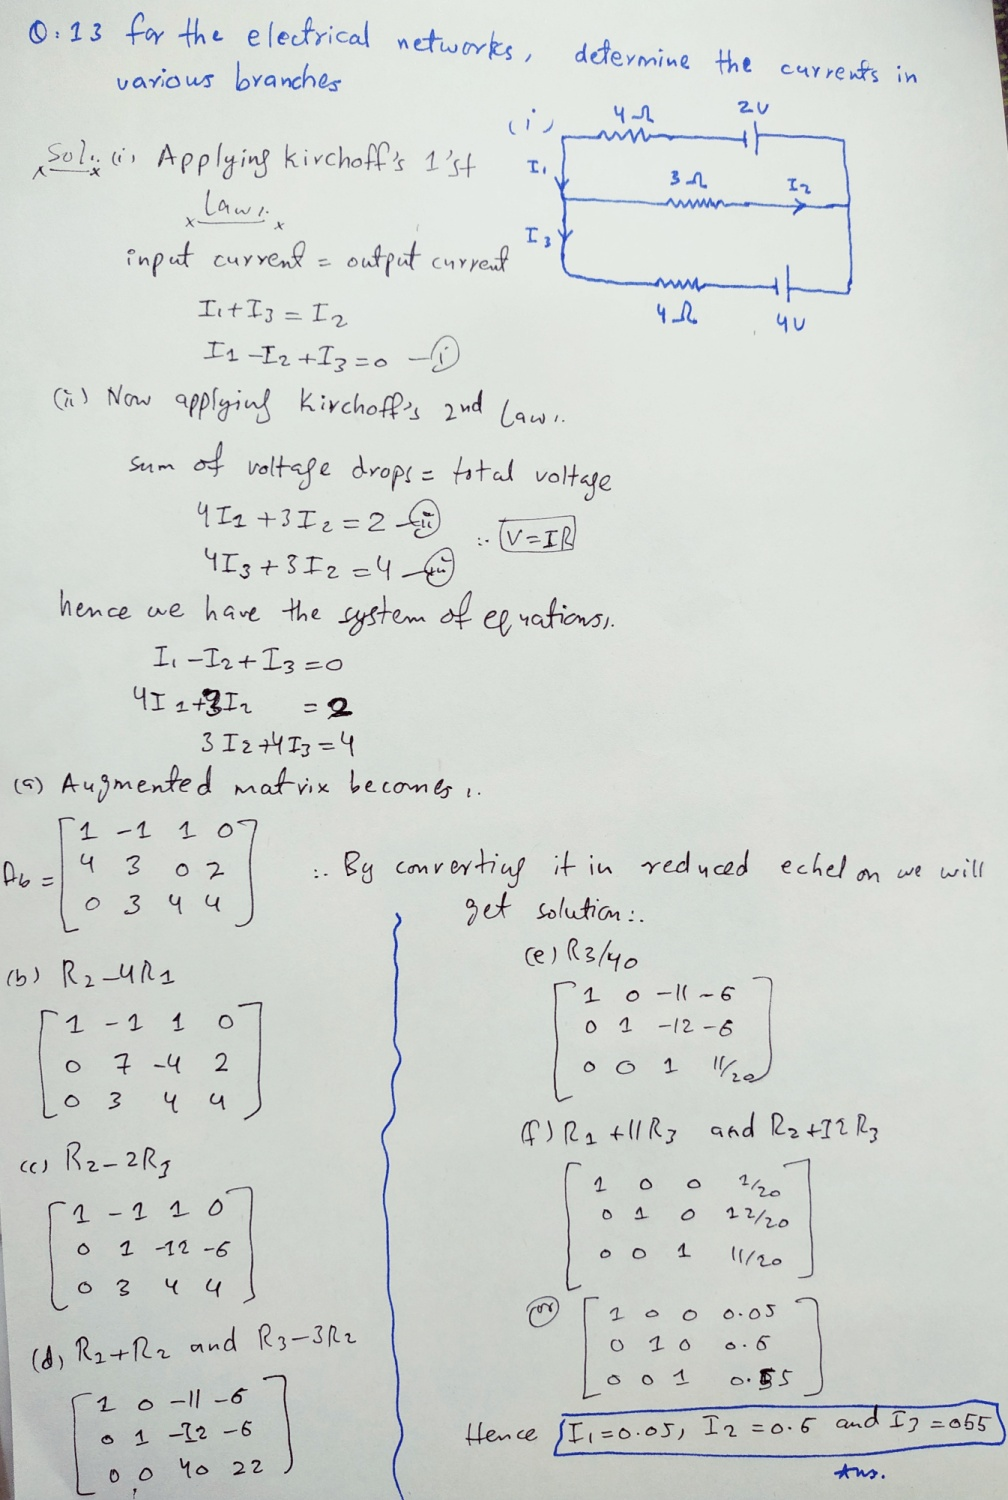 Q:13 for the electrical networks, determine the currents in
various branches
(i)
4Ω
2V
I1
3Ω
I2
I3
4Ω
4V
Sol:. (i) Applying kirchoff's 1'st
Law:.
input current = output current
I1+I3 = I2
I1 -I2 +I3 =0 —(i)
(ii) Now applying Kirchoff's 2nd Law:.
sum of voltage drops = total voltage
4I1 +3I2 =2 —(ii)
∴ V=IR
4I3 +3I2 =4 —(iii)
hence we have the system of equations:.
I1 -I2 +I3 =0
4I1 +3I2 = 2
3I2 +4I3 =4
(a) Augmented matrix becomes:.
Ab =
1 -1 1 0
4 3 0 2
0 3 4 4
∴ By converting it in reduced echelon we will
get solution:.
(b) R2 -4R1
1 -1 1 0
0 7 -4 2
0 3 4 4
(c) R2 -2R3
1 -1 1 0
0 1 -12 -6
0 3 4 4
(d) R1+R2 and R3-3R2
1 0 -11 -6
0 1 -12 -6
0 0 40 22
(e) R3/40
1 0 -11 -6
0 1 -12 -6
0 0 1 11/20
(f) R1 +11R3 and R2 +12R3
1 0 0 1/20
0 1 0 12/20
0 0 1 11/20
(or)
1 0 0 0.05
0 1 0 0.6
0 0 1 0.55
Hence I1=0.05, I2 =0.6 and I3 =055
Ans.